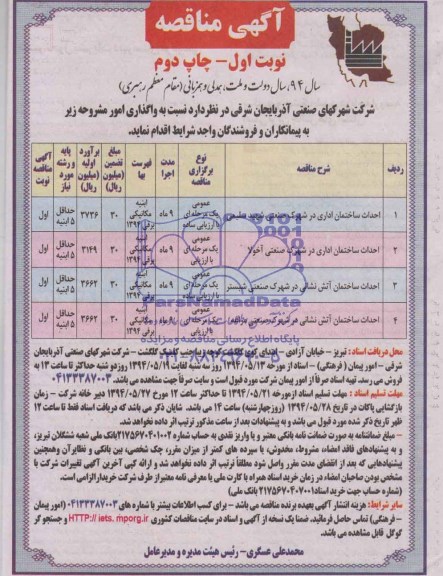 آگهی مناقصه
نوبت اول - چاپ دوم
سال ۹۴، سال دولت و ملت، همدلی و همزبانی (مقام معظم رهبری)
شرکت شهرکهای صنعتی آذربایجان شرقی در نظر دارد نسبت به واگذاری امور مشروحه زیر
به پیمانکاران و فروشندگان واجد شرایط اقدام نماید.
ردیف شرح مناقصه نوع برگزاری مناقصه مدت اجرا فهرست بها مبلغ تضمین (میلیون ریال) برآورد اولیه (میلیون ریال) پایه و رشته مورد نیاز آگهی مناقصه نوبت
۱ احداث ساختمان اداری در شهرک صنعتی شهید سلیمی عمومی یک مرحله ای با ارزیابی ساده ۹ ماه ابنیه مکانیکی برقی ۱۳۹۴ ۳۰ ۳۷۳۶ حداقل ۵ ابنیه اول
۲ احداث ساختمان اداری در شهرک صنعتی آخولا عمومی یک مرحله ای با ارزیابی ۹ ماه ابنیه مکانیکی برقی ۱۳۹۴ ۳۰ ۳۱۴۹ حداقل ۵ ابنیه اول
۳ احداث ساختمان آتش نشانی در شهرک صنعتی شبستر عمومی یک مرحله ای با ارزیابی ۹ ماه ابنیه مکانیکی برقی ۱۳۹۴ ۳۰ ۳۶۶۲ حداقل ۵ ابنیه اول
۴ احداث ساختمان آتش نشانی در شهرک صنعتی عمومی یک مرحله ای ارزیابی ۹ ماه ابنیه مکانیکی برقی ۱۳۹۴ ۳۰ ۳۶۶۲ حداقل ۵ ابنیه اول
ParsNamadData
پایگاه اطلاع رسانی مناقصه و مزایده
محل دریافت اسناد: تبریز - خیابان آزادی - ابتدای کوی گلگشت - کوچه زیباجنبی کلینیک گلگشت - شرکت شهرکهای صنعتی آذربایجان
شرقی - امور پیمان (فرهنگی) - اسناد از مورخه ۱۳۹۴/۰۵/۱۳ روز سه شنبه لغایت ۱۳۹۴/۰۵/۱۹ روز دو شنبه حداکثر تا ساعت ۱۳ به
فروش می رسد. تهیه اسناد صرفاً از امور پیمان شرکت مورد قبول است و سایت صرفاً جهت مشاهده می باشد. ۰۴۱۳۳۳۸۷۰۰۳
مهلت تسلیم اسناد: مهلت تسلیم اسناد ازمورخه ۱۳۹۴/۰۵/۲۱ تا حداکثر ساعت ۱۲ مورخ ۱۳۹۴/۰۵/۲۷ دبیر خانه شرکت - زمان
بازگشایی پاکات در تاریخ ۱۳۹۴/۰۵/۲۸ روز(چهارشنبه) ساعت ۱۴ می باشد. شایان ذکر می باشد که دریافت اسناد فقط تا ساعت ۱۲
ظهر تاریخ ذکر شده مورد قبول می باشد و به پیشنهادات بعد از ساعت مذکور ترتیب اثر داده نخواهد شد.
- مبلغ ضمانتنامه به صورت ضمانت نامه بانکی معتبر و یا واریز نقدی به حساب شماره ۲۱۷۵۶۷۰۴۰۱۰۰۲ بانک ملی شعبه ششگلان تبریز،
و به پیشنهادهای فاقد امضاء، مشروط، مخدوش، یا سپرده های کمتر از میزان مقرر، چک شخصی، بین بانکی و نظایر آن و همچنین
پیشنهادهایی که بعد از انقضای مدت مقرر واصل شود مطلقاً ترتیب اثر داده نخواهد شد و ارائه کپی آخرین آگهی تغییرات شرکت با
مشخص بودن صاحبان امضاء در زمان خرید اسناد همراه با کارت ملی یا معرفی نامه معتبر از طرف شرکت خریدار الزامی است.
(شماره حساب جهت خرید اسناد ۲۱۷۵۶۷۰۴۰۷۰۰۱ بانک ملی)
سایر شرایط: هزینه انتشار آگهی بعهده برنده مناقصه می باشد - برای کسب اطلاعات بیشتر با شماره های ۰۴۱۳۳۳۸۷۰۰۳ (امور پیمان
- فرهنگی) تماس حاصل فرمائید. ضمنا یک نسخه از آگهی و اسناد در سایت مناقصات کشوری HTTP:// iets. mporg.ir و جستجو گر
گوگل قابل مشاهده می باشد.
محمدعلی عسگری - رئیس هیئت مدیره و مدیرعامل